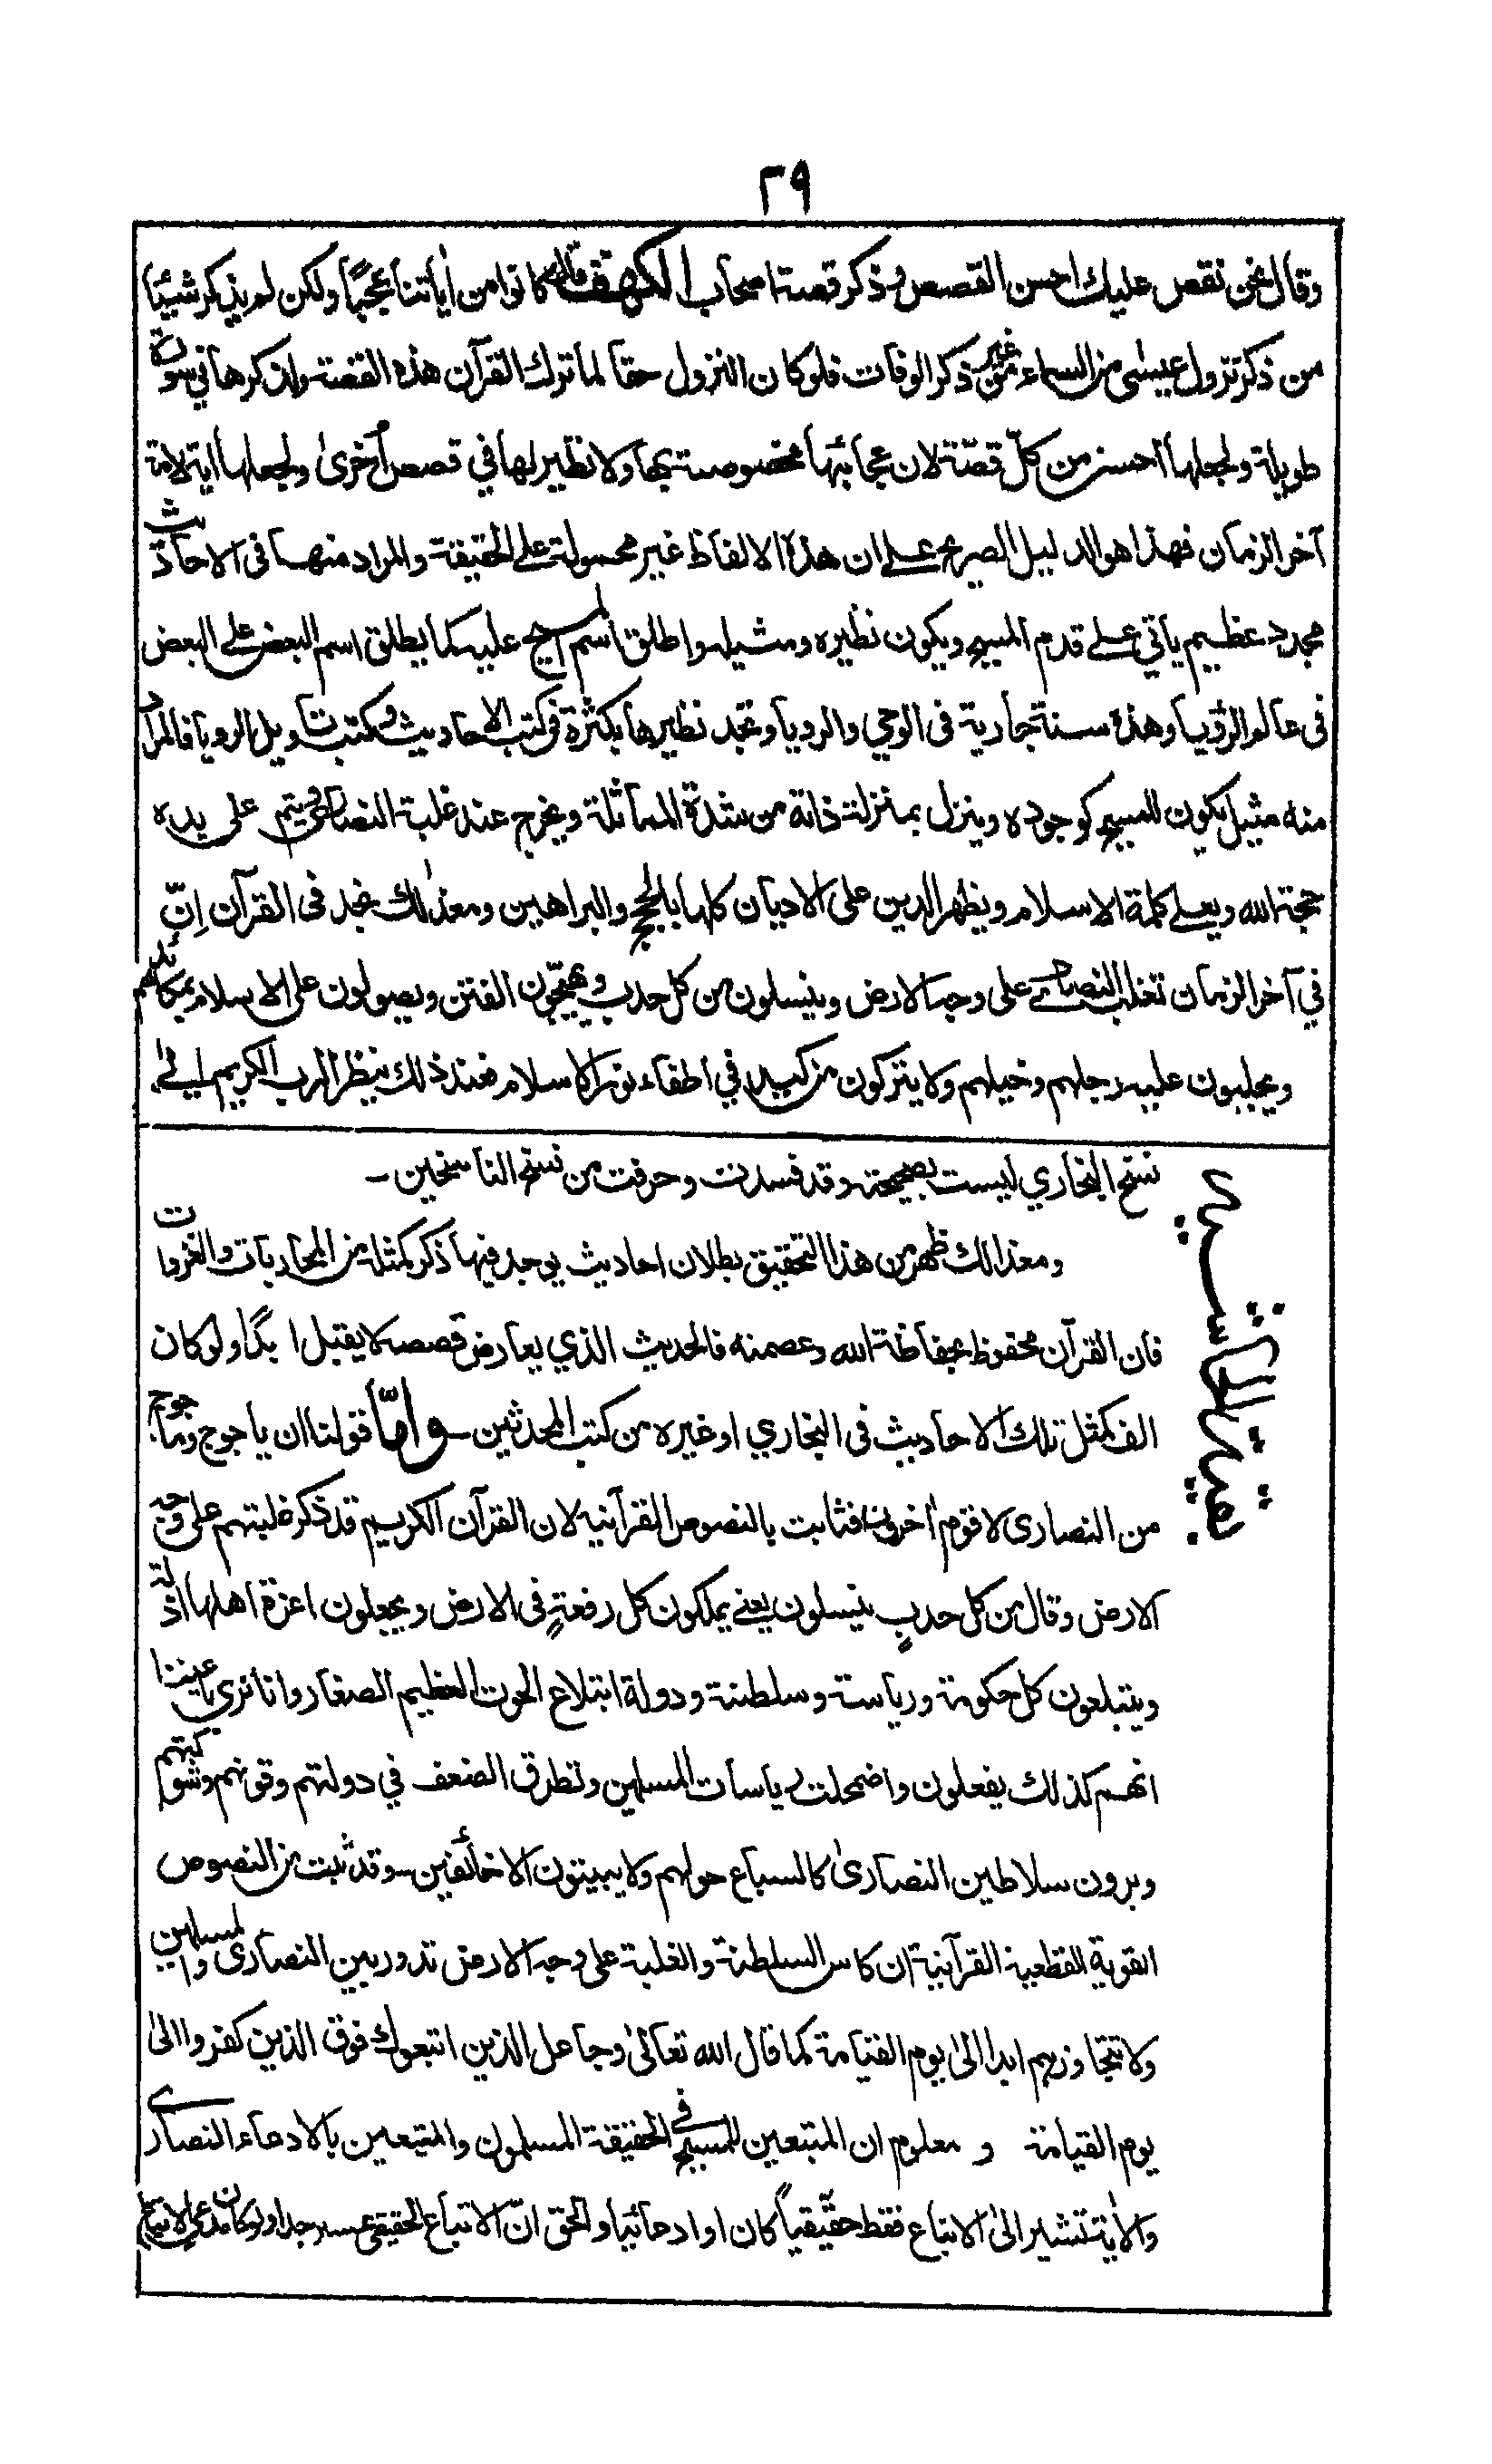 ٢٩
وقال نحن نقص عليك احسن القصص وذكر قصة اصحاب الكهف وقال كانوا من اٰياتنا عجبًا ولكن لم يذكر شيئًا
من ذكر نزول عيسٰى من السماء من غير ذكر الوفات فلو كان النزول حقا لما ترك القرآن هذه القصة ولذكرها في سورة
طويلة ولجعلها احسن من كل قصّة لان عجائبها مخصوصة بها ولا نظير لها في قصص اُخرىٰ ولجعلها اٰية لامة
آخر الزمان فهذا هو الدليل الصريح علے ان هذه الالفاظ غير محمولة على الحقيقة والمراد منها فى الاحاديث
مجدد عظيم ياتي علے قدم المسيح ويكون نظيره ومثيله واطلق اسم المسيح عليه كما يطلق اسم البعض على البعض
فى عالم الرؤيا وهذه سنة جارية فى الوحي والرديا وتجد نظيرها بكثرة فى كتب الاحاديث وكتب تاويل الرويا فالمراد
منه مثيل يكون للمسيح كوجوده وينزل بمنزلة ذاته من شدة المماثلة ويخرج عند غلبة النصارى ويتم على يده
حجة الله ويعلے كلمة الاسلام ويظهر الدين على الاديان كلها بالحجج والبراهين ومعذٰلك نجد فى القرآن اِنّ
في آخر الزمان تغلب النصارى على وجه الارض وينسلون من كل حدب ويهيّجون الفتن ويصولون على الاسلام بمكائدهم
ويجلبون عليه رجلهم وخيلهم ولا يتركون من كيد في اطفاء نور الاسلام فعند ذلك ينظر الرب الكريم الے
نسخ البخاري ليست بصحيحة وقد فسدت وحرفت من نسخ الناسخين ـ
ومعذالك ظهر من هذا التحقيق بطلان احاديث يوجد فيها ذكر كمثله من المحاربات والغزوات
فان القرآن محفوظ بحفاظة الله وعصمته فالحديث الذي يعارض قصصه لا يقبل ابدًا ولو كان
الف كمثل تلك الاحاديث فى البخاري او غيره من كتب المحدثين ـ واما قولنا ان ياجوج وماجوج
من النصارى لا قوم اٰخرون فثابت بالنصوص القرآنية لان القرآن الكريم قد ذكر غلبتهم على وجه
الارض وقال من كل حدبٍ ينسلون يعنے يملكون كل رفعةٍ فى الارض ويجعلون اعزة اهلها اذلة
ويبتلعون كل حكومة ورياست وسلطنة ودولة ابتلاع الحوت العظيم الصغار وانا نرى باعيننا
انهم كذلك يفعلون واضمحلت رياسات المسلمين وتطرق الضعف في دولتهم وقوتهم وشوكتهم
ويرون سلاطين النصارىٰ كالسباع حولهم ولا يبيتون الا خائفين ـ وقد ثبت من النصوص
القوية القطعية القرآنية ان كاس السلطنة والغلبة على وجه الارض تدور بين النصارى والمسلمين
ولا تتجاوزهم ابدا الىٰ يوم القيامة كما قال الله تعالىٰ وجاعل الذين اتبعوك فوق الذين كفروا الىٰ
يوم القيامة و معلوم ان المتبعين للمسيح في الحقيقة المسلمون والمتبعين بالادعاء النصارى
والاٰية تشير الىٰ الاتباع فقط حقيقياً كان او ادعائيا والحق انّ الاتباع الحقيقى عسير جدا ولو كان مدعى الاتباع